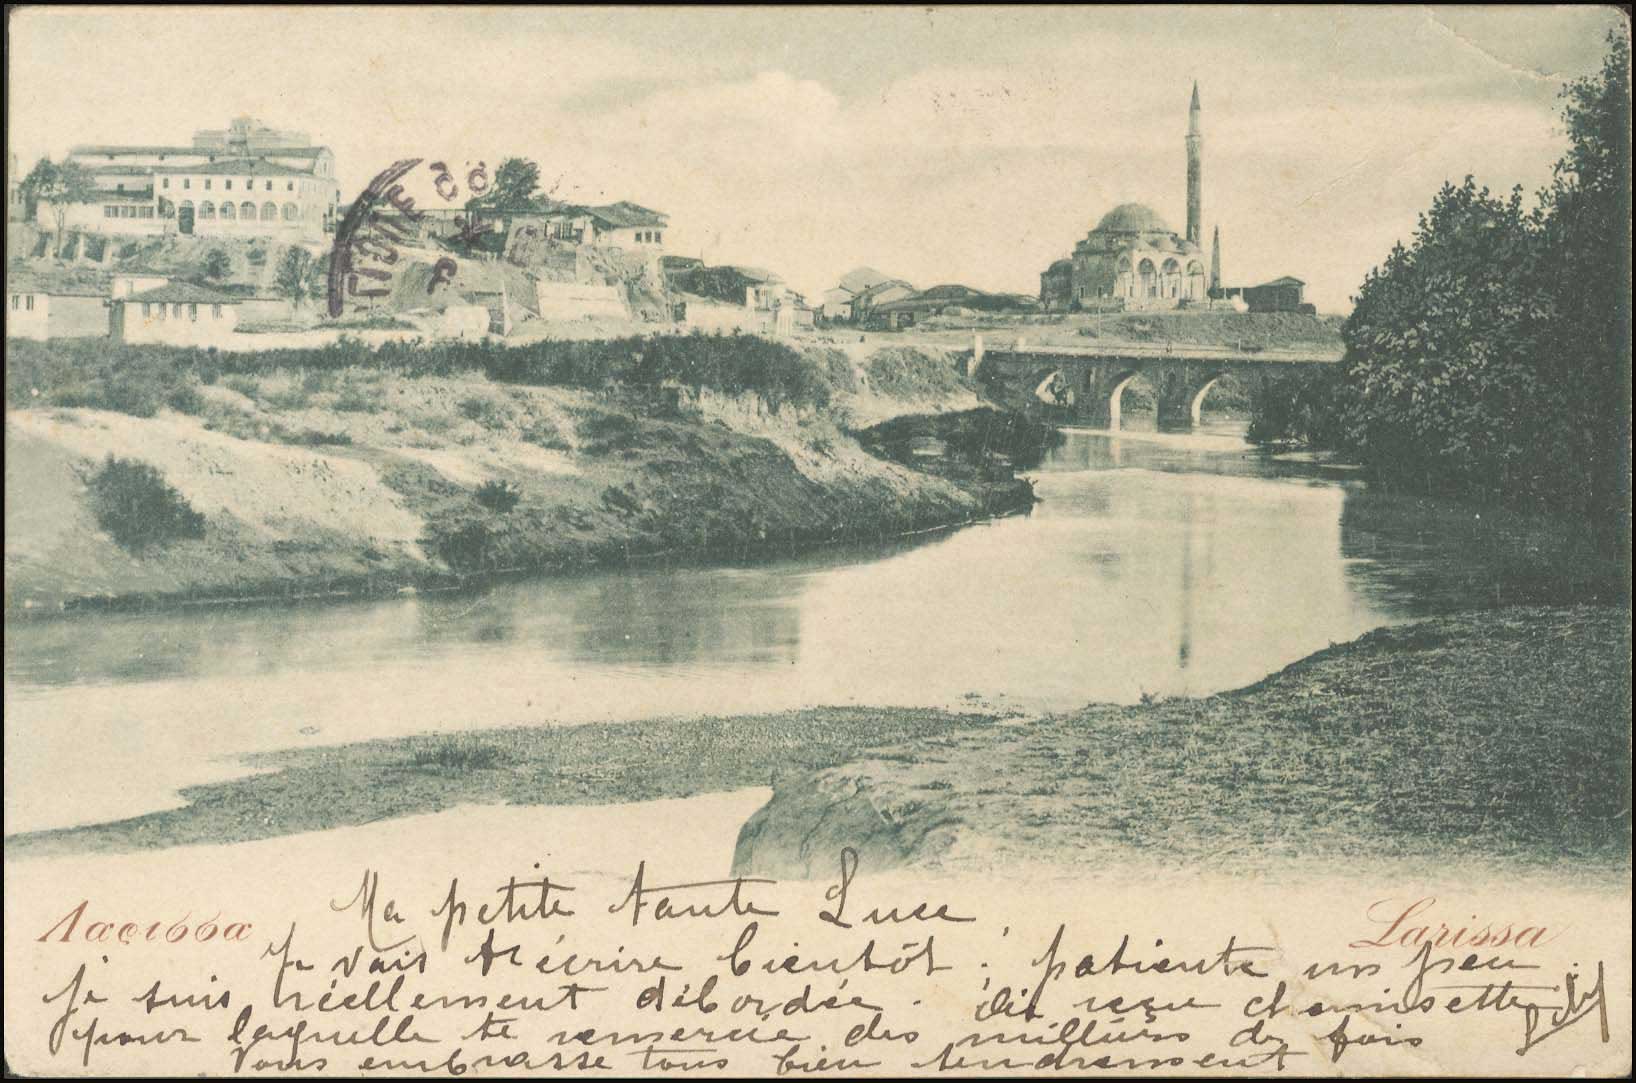 Λαρισσα
Larissa
Ma petite tante Luce
Je vais t'écrire bientôt : patiente un peu.
Je suis réellement débordée. Ai reçu chemisette
pour laquelle te remercie des milliers de fois
Vous embrasse tous bien tendrement